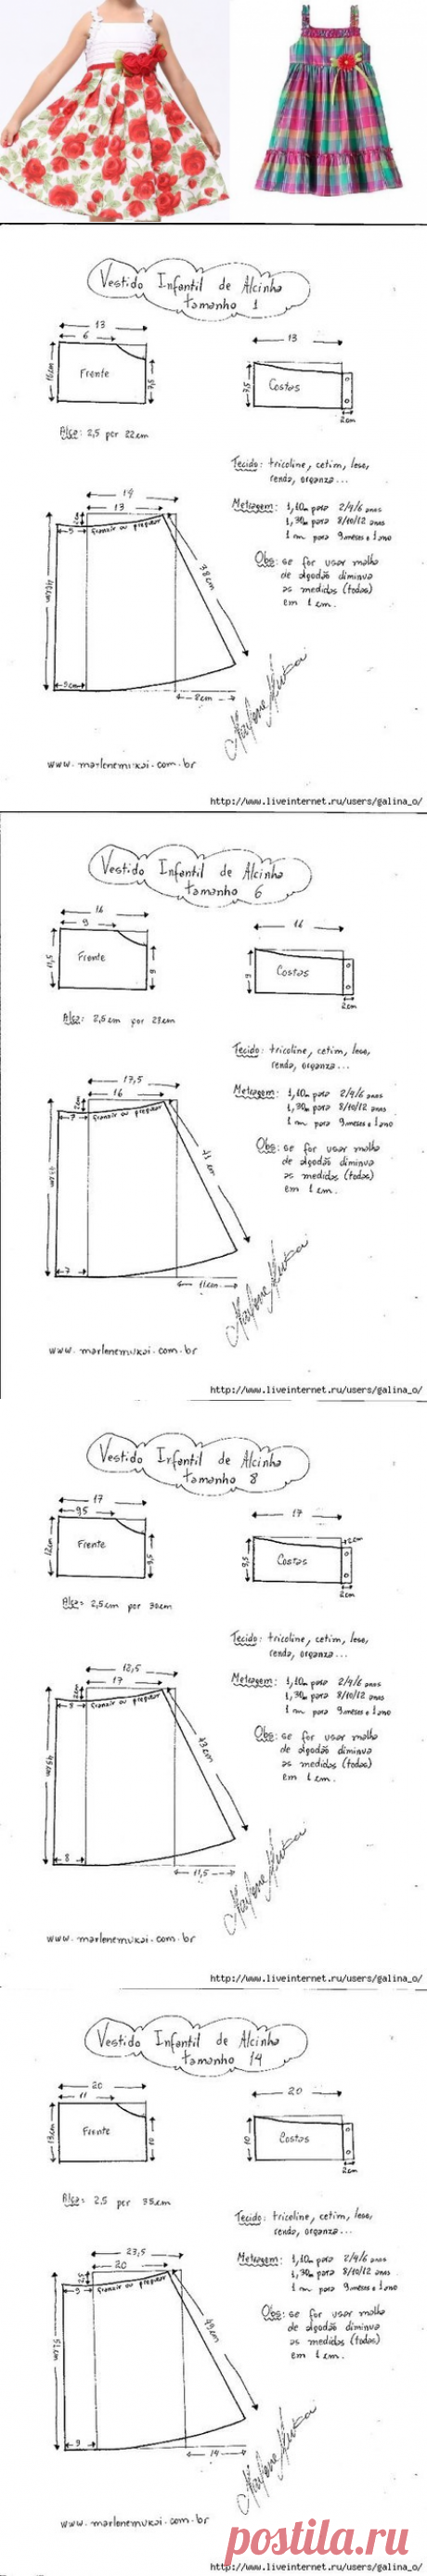 Vestido Infantil de Alcinha
tamanho 1
13
6
13
Frente
Costas
7,5
2cm
Alça: 2,5 por 22cm
Tecido: tricoline, cetim, lese,
renda, organza...
Metragem: 1,10m para 2/4/6 anos
1,30m para 8/10/12 anos
1 m para 9meses e 1 ano
Obs: se for usar malha
de algodão diminua
as medidas (todas)
em 1 cm.
14
13
2cm
5
franzir ou preguear
38cm
40cm
5cm
8cm
Marlene Mukai
www.marlenemukai.com.br
http://www.liveinternet.ru/users/galina_o/
Vestido Infantil de Alcinha
tamanho 6
16
9
16
Frente
Costas
11,5
9
9
2cm
Alça: 2,5cm por 28cm
Tecido: tricoline, cetim, lese,
renda, organza...
Metragem: 1,10m para 2/4/6 anos
1,30m para 8/10/12 anos
1 m para 9meses e 1 ano
Obs: se for usar malha
de algodão diminua
as medidas (todas)
em 1 cm.
17,5
16
2cm
7
franzir ou preguear
41 cm
7
11cm
Marlene Mukai
www.marlenemukai.com.br
http://www.liveinternet.ru/users/galina_o/
Vestido Infantil de Alcinha
tamanho 8
17
9,5
17
Frente
Costas
12cm
9,5
9,5
+2cm
2cm
Alça: 2,5cm por 30cm
Tecido: tricoline, cetim, lese,
renda, organza...
Metragem: 1,10m para 2/4/6 anos
1,30m para 8/10/12 anos
1 m para 9meses e 1 ano
Obs: se for usar malha
de algodão diminua
as medidas (todas)
em 1 cm.
17
2cm
8
franzir ou preguear
43cm
45cm
8
11,5
Marlene Mukai
www.marlenemukai.com.br
http://www.liveinternet.ru/users/galina_o/
Vestido Infantil de Alcinha
tamanho 14
20
11
20
Frente
Costas
13cm
10
10
2cm
Alça: 2,5 por 35cm
Tecido: tricoline, cetim, lese,
renda, organza...
Metragem: 1,10m para 2/4/6 anos
1,30m para 8/10/12 anos
1 m para 9meses e 1 ano
Obs: se for usar malha
de algodão diminua
as medidas (todas)
em 1 cm.
23,5
20
2,5
9
franzir ou preguear
49cm
51cm
9
14
Marlene Mukai
www.marlenemukai.com.br
postila.ru
http://www.liveinternet.ru/users/galina_o/